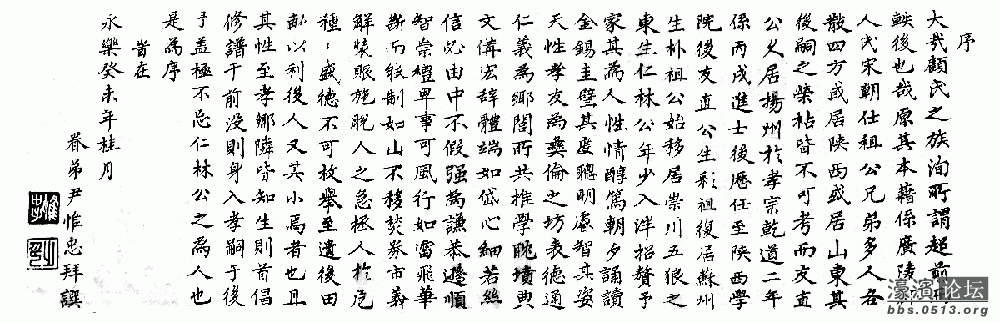 序
大哉顧氏之族洵所謂超前
軼後也哉原其本藉係廣陵
人氏宋朝仕祖公兄弟多人各
散四方或居陝西或居山東其
後嗣之榮枯皆不可考而文直
公父居揚州於孝宗乾道二年
係丙戌進士後歷任至陝西學
院後友直公生彩祖復居蘇州
生朴祖公始移居崇川五狼之
東生仁林公年少入泮招贅予
家其為人性情醇篤朝夕誦讀
金錫圭璧其度聰明濬智其姿
天性孝友為彝倫之坊表德通
仁義為鄉閭所共推學貌墳典
文備宏辭體端如岱心細若絲
信必由中不假強為謙恭遜順
智崇禮卑事可風行如雷飛華
斷而能制如山不移焚券市義
解裝賑施脫人之急極人於危
種種盛德不可枚舉至遺後田
畝以利後人又其小焉者也且
其性至孝鄉隣皆知生則首倡
修譜于前没則身入孝嗣于後
予盖極不忘仁林公之為人也
是為序
旹在
永樂癸未年桂月
眷弟尹惟忠拜譔
濠滨论坛
bbs.0513.org